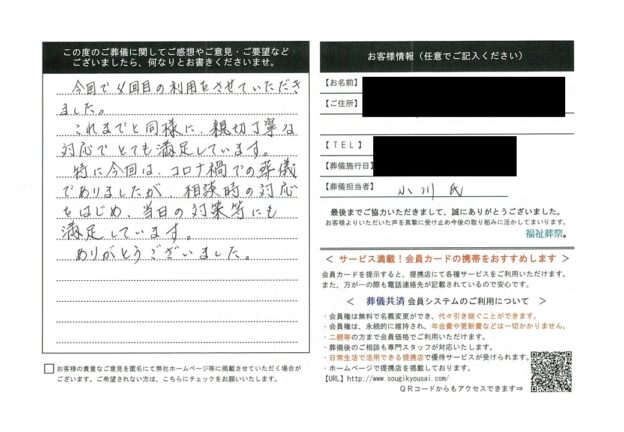 この度のご葬儀に関してご感想やご意見・ご要望など
ございましたら、何なりとお書きくださいませ。
今回で4回目の利用をさせていただき
ました。
これまでと同様に、親切丁寧な
対応でとても満足しています。
特に今回は、コロナ禍での葬儀
でありましたが、相談時の対応
をはじめ、当日の対策等にも
満足しています。
ありがとうございました。
お客様の貴重なご意見を匿名にて弊社ホームページ等に掲載させていただく場合が
ございます。ご希望されない方は、こちらにチェックをお願いいたします。
お客様情報（任意でご記入ください）
【お名前】
【ご住所】
【ＴＥＬ】
【葬儀施行日】
【葬儀担当者】 小川氏
最後までご協力いただきまして、誠にありがとうございました。
お客様よりいただいた声を真摯に受け止め今後の取り組みに活かしてまいります。
福祉葬祭。
＜ サービス満載！会員カードの携帯をおすすめします ＞
会員カードを提示すると、提携店にて各種サービスをご利用いただけます。
また、万が一の際も電話連絡先が記載されているので安心です。
＜ 葬儀共済 会員システムのご利用について ＞
・会員権は無料で名義変更ができ、代々引き継ぐことができます。
・会員権は、永続的に維持され、年会費や更新費などは一切かかりません。
・二親等の方まで会員価格でご利用いただけます。
・葬儀後のご相談も専門スタッフが対応いたします。
・日常生活で活用できる提携店で優待サービスが受けられます。
・ホームページで提携店を掲載しております。
【URL】http://www.sougikyousai.com/
ＱＲコードからもアクセスできます⇒